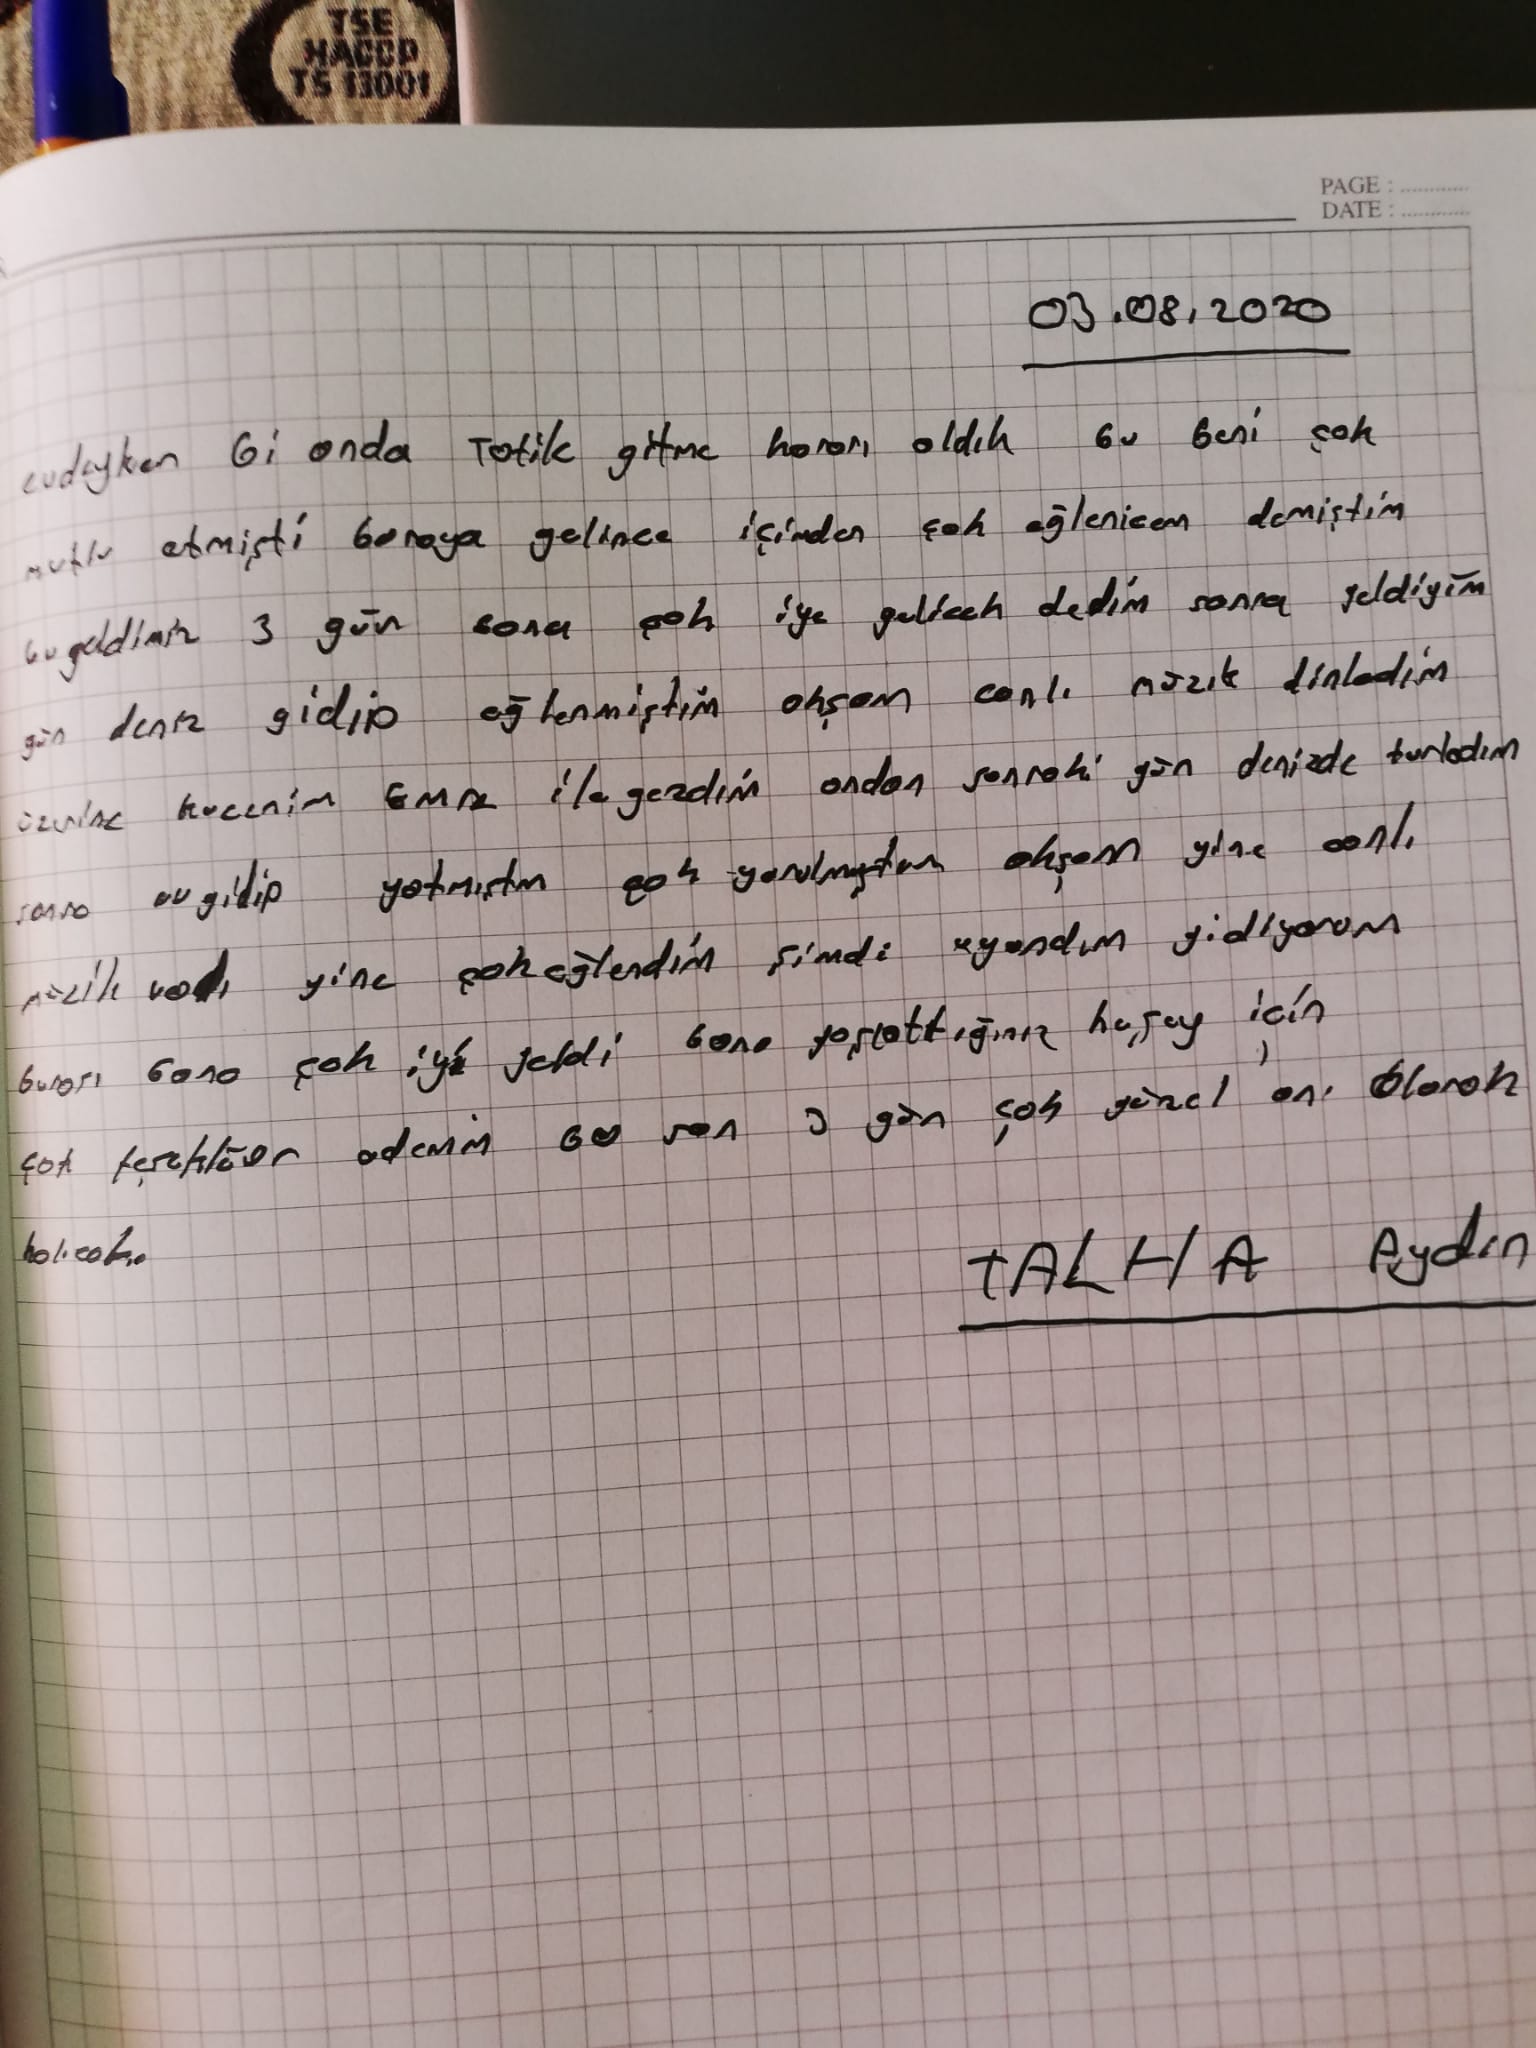 TSE
HACCP
TS 13001
PAGE : ............
DATE : ............
03.08.2020
evdeyken bi anda Tatile gitme kararı aldık bu beni çok
mutlu etmişti buraya gelince içimden çok eğlenicem demiştim
bu geldimiz 3 gün bana çok iye gelicek dedim sonra geldiyim
gün deniz gidip eğlenmiştim akşam canlı müzik dinledim
üzerine kuzenim ile gezdim ondan sonraki gün denizde turladım
sonra ev gidip yatmıştım çok yorulmuştum akşam yine canlı
müzik vadı yine çok eğlendim şimdi uyandım gidiyorum
burası bana çok iyi geldi bana yaşattığınız herşey için
çok teşekküer ederim bu son 3 gün çok güzel anı olarak
kalıcak..
TALHA Aydın